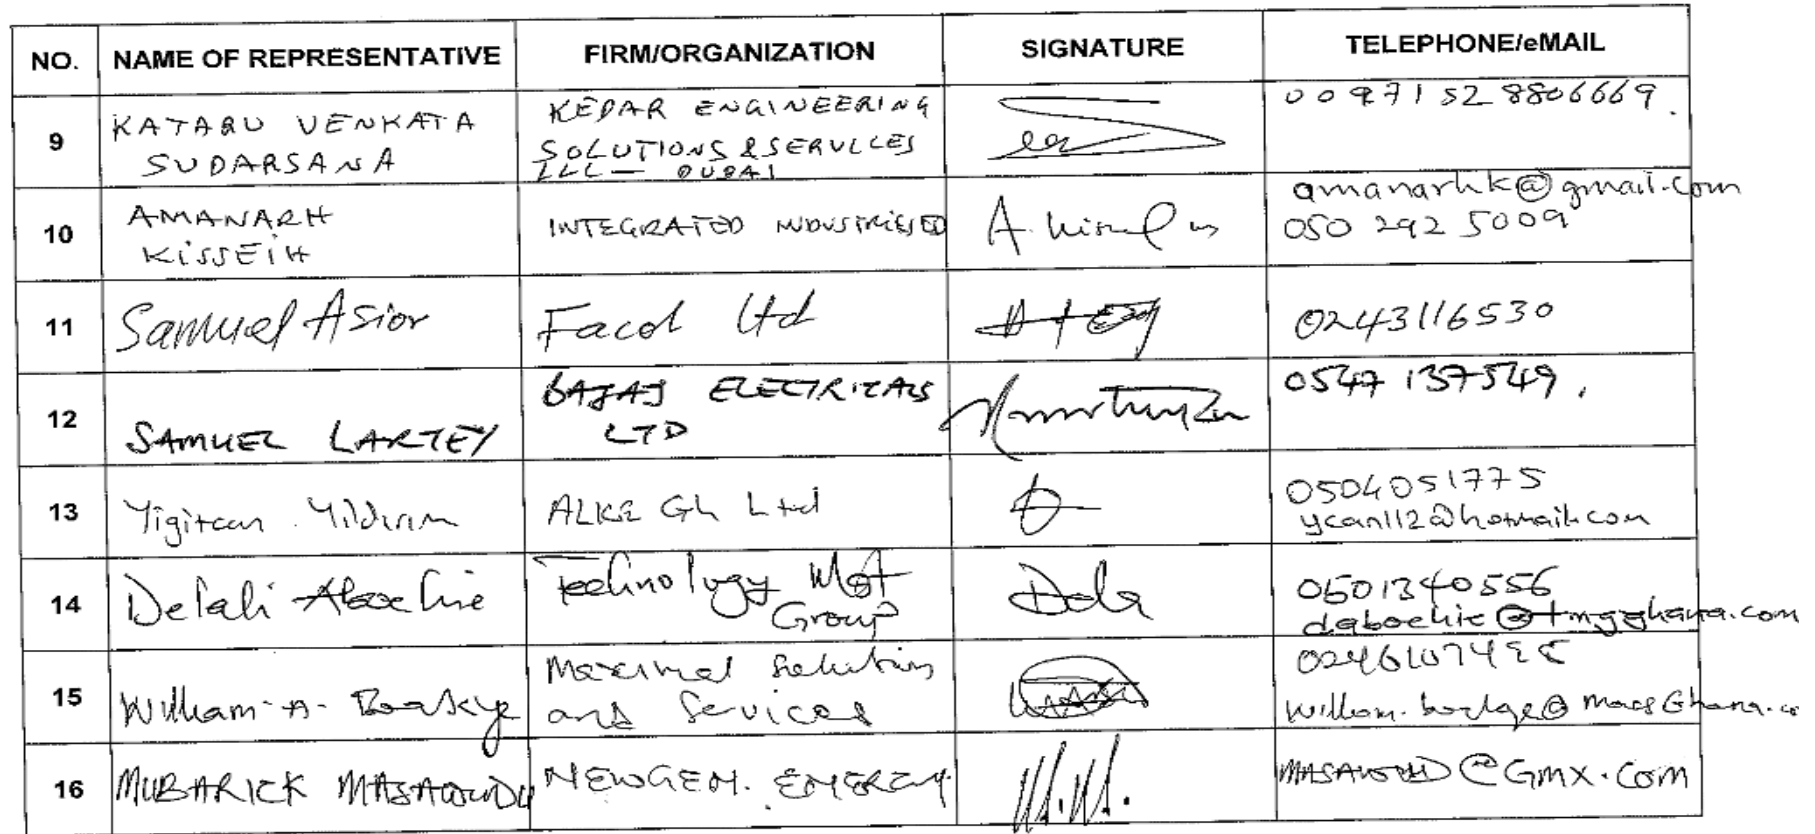 NO. NAME OF REPRESENTATIVE FIRM/ORGANIZATION SIGNATURE TELEPHONE/eMAIL
9 KATARU VENKATA SUDARSANA KEDAR ENGINEERING SOLUTIONS & SERVICES LLC — DUBAI 00971528806669.
10 AMANARH KISSEIH INTEGRATED INDUSTRIES amanarhk@gmail.com 050 292 5009
11 Samuel Asior Facol Ltd 0243116530
12 SAMUEL LARTEY BAJAJ ELECTRICALS LTD 0547137549.
13 Yigitcan Yildirim ALKE Gh Ltd 0504051775 ycan112@hotmail.com
14 Delali Aboechie Technology Mgt Group 0501340556 daboechie@tmgghana.com
15 William A. Boakye Maximal Solution and Services
16 MUBARICK MASAWUDU NEWGEN. ENERGY